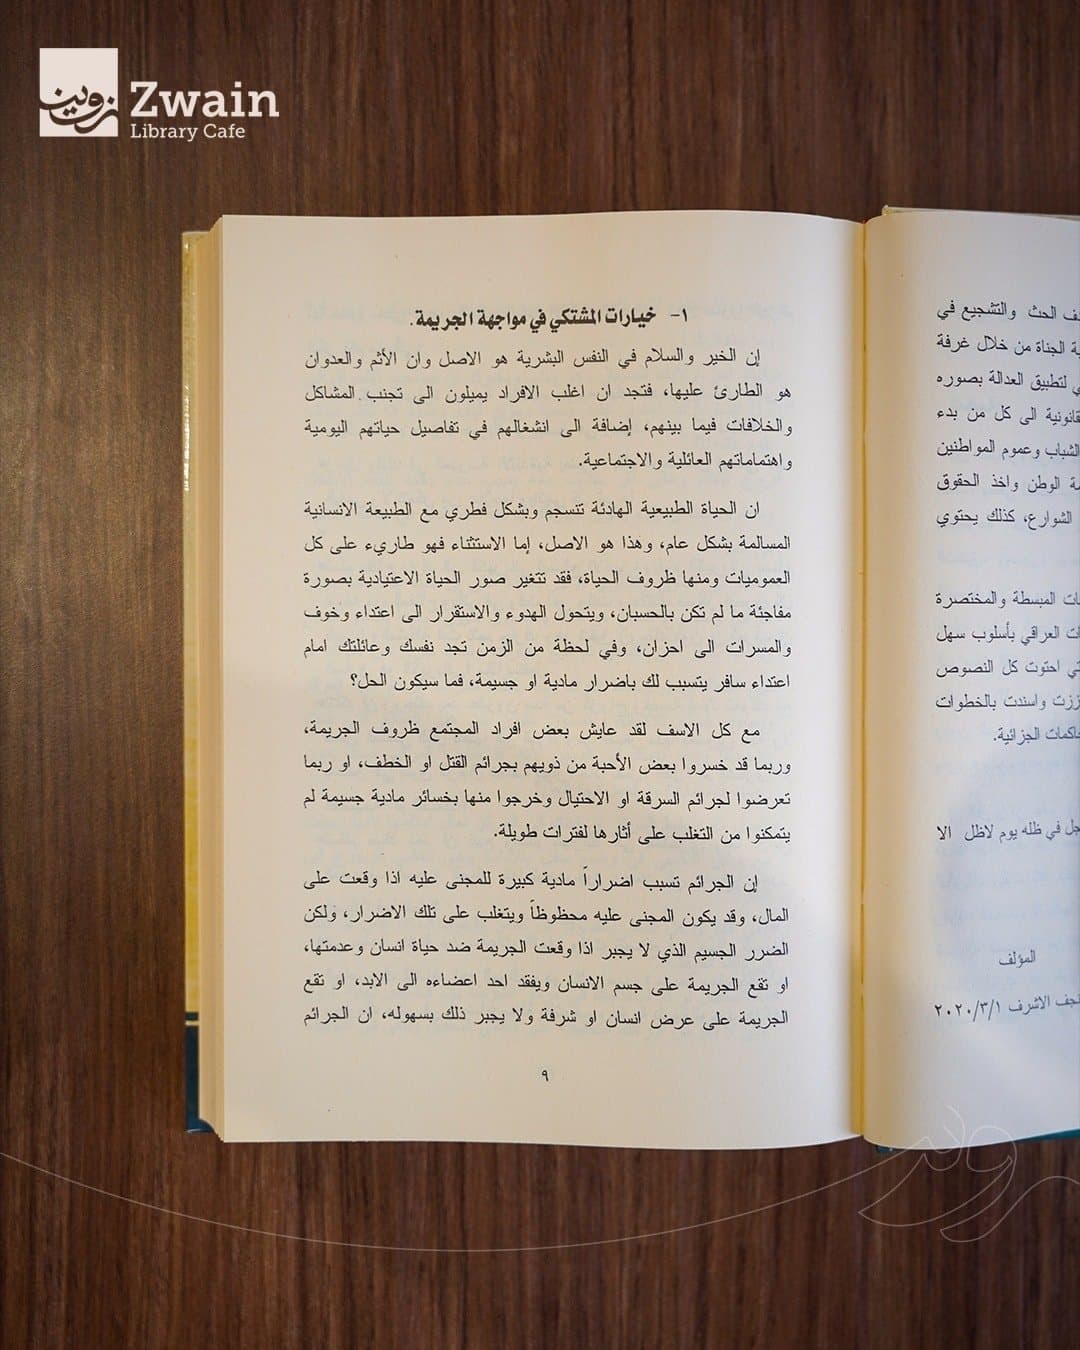 زوين
Zwain
Library Cafe
١- خيارات المشتكي في مواجهة الجريمة.
إن الخير والسلام في النفس البشرية هو الاصل وان الأثم والعدوان
هو الطارئ عليها، فتجد ان اغلب الافراد يميلون الى تجنب المشاكل
والخلافات فيما بينهم، إضافة الى انشغالهم في تفاصيل حياتهم اليومية
واهتماماتهم العائلية والاجتماعية.
ان الحياة الطبيعية الهادئة تنسجم وبشكل فطري مع الطبيعة الانسانية
المسالمة بشكل عام، وهذا هو الاصل، إما الاستثناء فهو طاريء على كل
العموميات ومنها ظروف الحياة، فقد تتغير صور الحياة الاعتيادية بصورة
مفاجئة ما لم تكن بالحسبان، ويتحول الهدوء والاستقرار الى اعتداء وخوف
والمسرات الى احزان، وفي لحظة من الزمن تجد نفسك وعائلتك امام
اعتداء سافر يتسبب لك باضرار مادية او جسيمة، فما سيكون الحل؟
مع كل الاسف لقد عايش بعض افراد المجتمع ظروف الجريمة،
وربما قد خسروا بعض الأحبة من ذويهم بجرائم القتل او الخطف، او ربما
تعرضوا لجرائم السرقة او الاحتيال وخرجوا منها بخسائر مادية جسيمة لم
يتمكنوا من التغلب على أثارها لفترات طويلة.
إن الجرائم تسبب اضراراً مادية كبيرة للمجنى عليه اذا وقعت على
المال، وقد يكون المجنى عليه محظوظاً ويتغلب على تلك الاضرار، ولكن
الضرر الجسيم الذي لا يجبر اذا وقعت الجريمة ضد حياة انسان وعدمتها،
او تقع الجريمة على جسم الانسان ويفقد احد اعضاءه الى الابد، او تقع
الجريمة على عرض انسان او شرفة ولا يجبر ذلك بسهوله، ان الجرائم
٩
الحث والتشجيع في
الجناة من خلال غرفة
لتطبيق العدالة بصوره
الى كل من بدء
الشباب وعموم المواطنين
الوطن واخذ الحقوق
الشوارع، كذلك يحتوي
المبسطة والمختصرة
العراقي بأسلوب سهل
احتوت كل النصوص
واسندت بالخطوات
الجزائية.
في ظله يوم لاظل الا
المؤلف
الاشرف ٢٠٢٠/٣/١